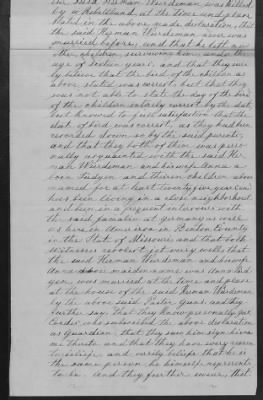 the said Herman Wurdeman was killed
by Rebelsband at the time and place
stated in the above made declaration, that
the said Herman Wurdeman never was
married before, and that he left now
other children surviving him under the
age of sixteen years, and that they surely
believe that the bird of the children as
above stated was correct, but that they
was not able to state the day of the bird
of the children entirely correct by the dat
but knowed to full satisfaction that the
date of bird was correct, as they had been
recorded down so by the said parents
and that they both of them was perso
nally acquainted with the said Her
man Wurdeman and his wife Anna
born Ludgen and theiren children above
named for at least twenty five years and
has been living in a close neighborhood
and been in a frequent intercourse with
the said families at germany as well
as here in American in Benton County
in the State of Missouri and that both
witnesses recollect yet very well that
the said Herman Wurdeman and his wife
Anna maiden name was Anna
was married at the time and place
at the house of the said Herman Wurdeman
by the above said Pastor and they
further say, That they know personally
Cordes who subscribed the above declaration
as Guardian, that they saw him sign his na
me thereto and that they have every reason
to believe and verily believe that he is
the same person he himself represents
to be, and they further swear, that